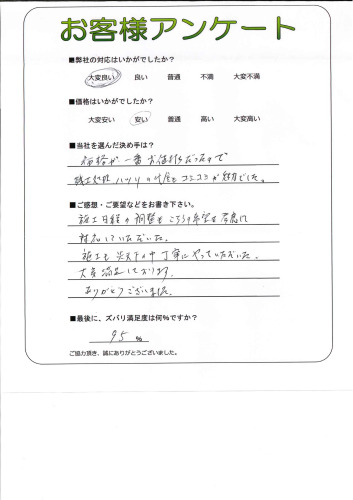 お客様アンケート
■弊社の対応はいかがでしたか？
大変良い 良い 普通 不満 大変不満
■価格はいかがでしたか？
大変安い 安い 普通 高い 大変高い
■当社を選んだ決め手は？
価格が一番お値打ちだったので
■ご感想・ご要望などをお書き下さい。
施工日程の調整もこちらの希望を考慮に
対応していただいた。
施工も炎天下の中丁寧にやっていただいた。
大変満足しております。
ありがとうございました。
■最後に、ズバリ満足度は何％ですか？
95 %
ご協力頂き、誠にありがとうございました。